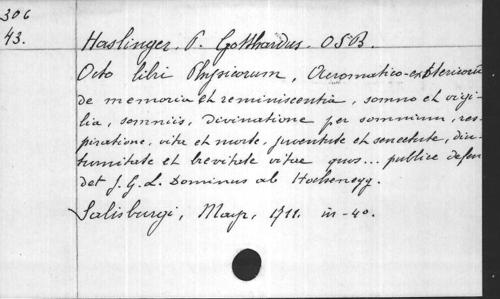 306
43.
Haslinger. P. Gotthardus. OSB.
Octo libri Physicorum, Acromatico-exotericorū
de memoria et reminiscentia, somno et vigi-
lia, somniis, divinatione per somnium, res-
piratione, vita et morte, juventute et senectute, diu-
turnitate et brevitate vitae quos... publice defen
det J. G. L. Dominus ab Hochenegg.
Salisburgi, Mayr, 1711. in-4o.